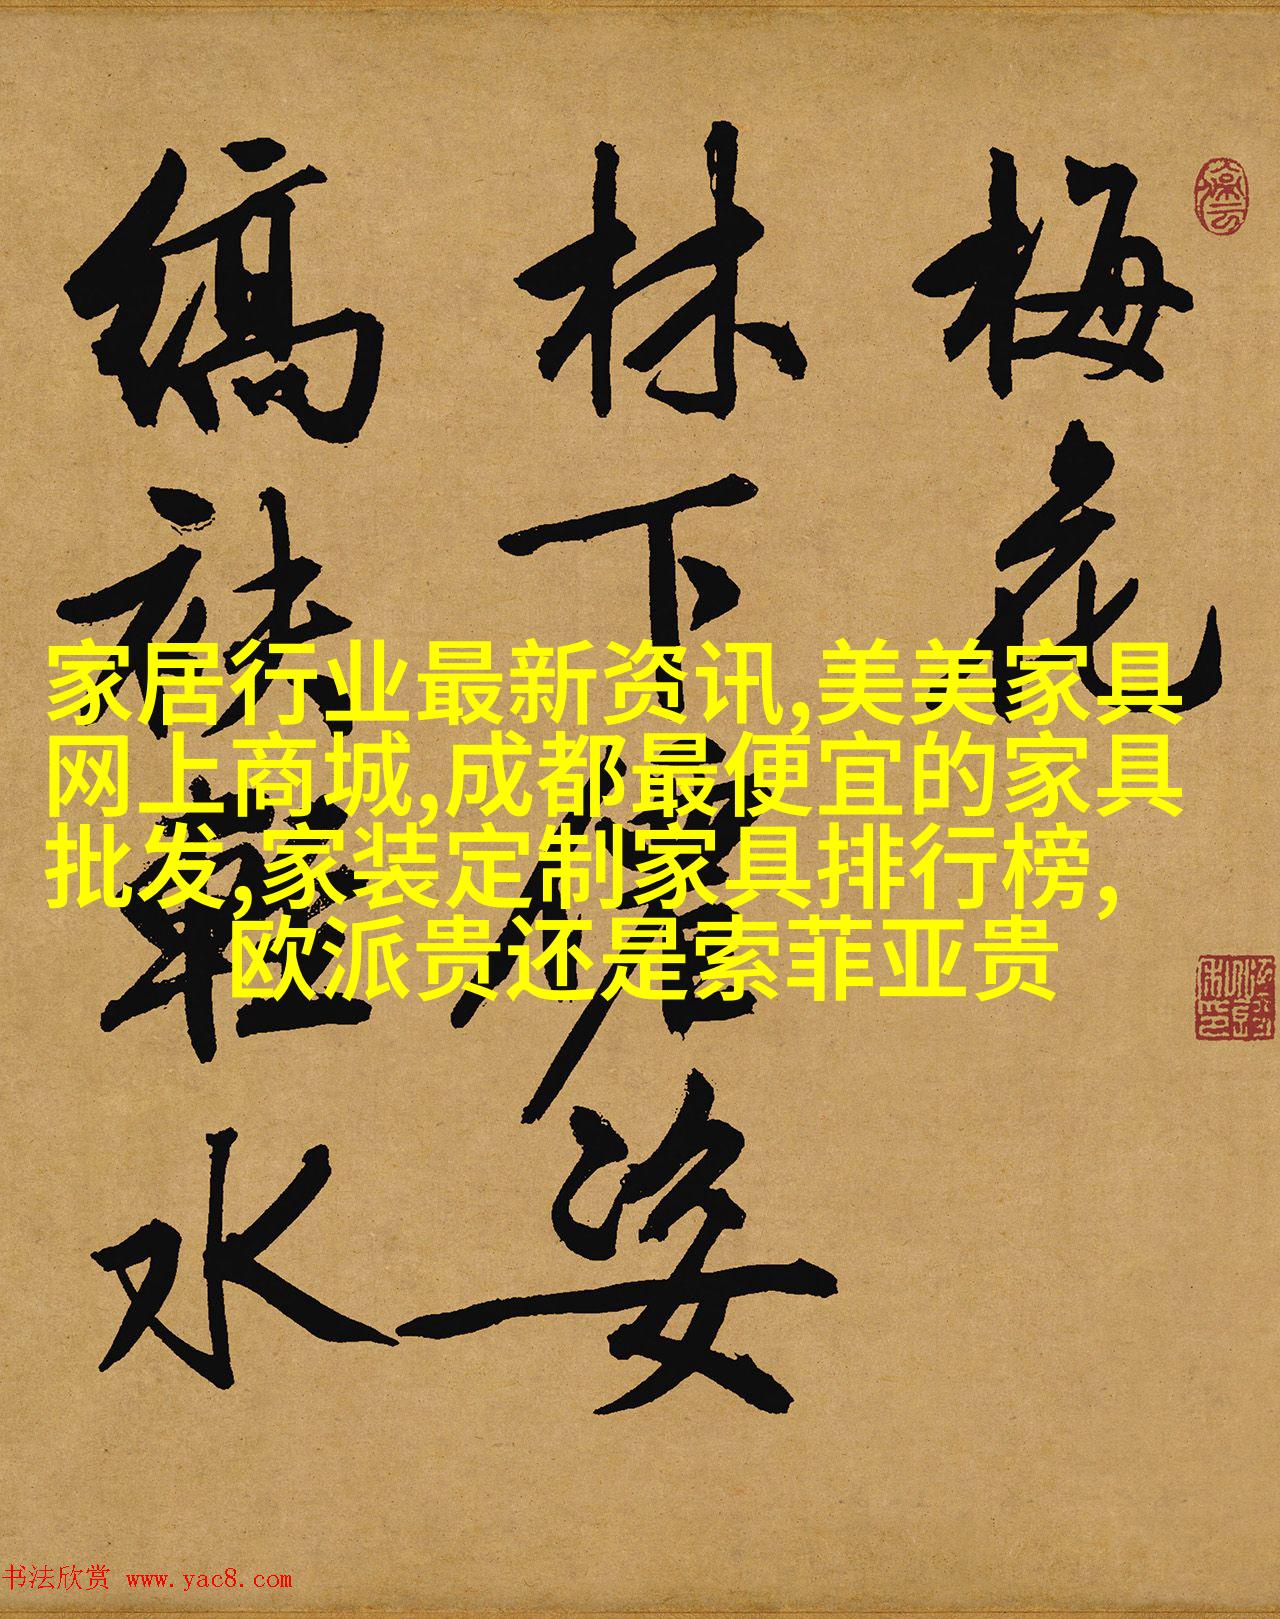 梅花
林下僊姿
縞袂輕水
家居行业最新资讯,美美家具
网上商城,成都最便宜的家具
批发,家装定制家具排行榜,
欧派贵还是索菲亚贵
书法欣赏 www.yac8.com